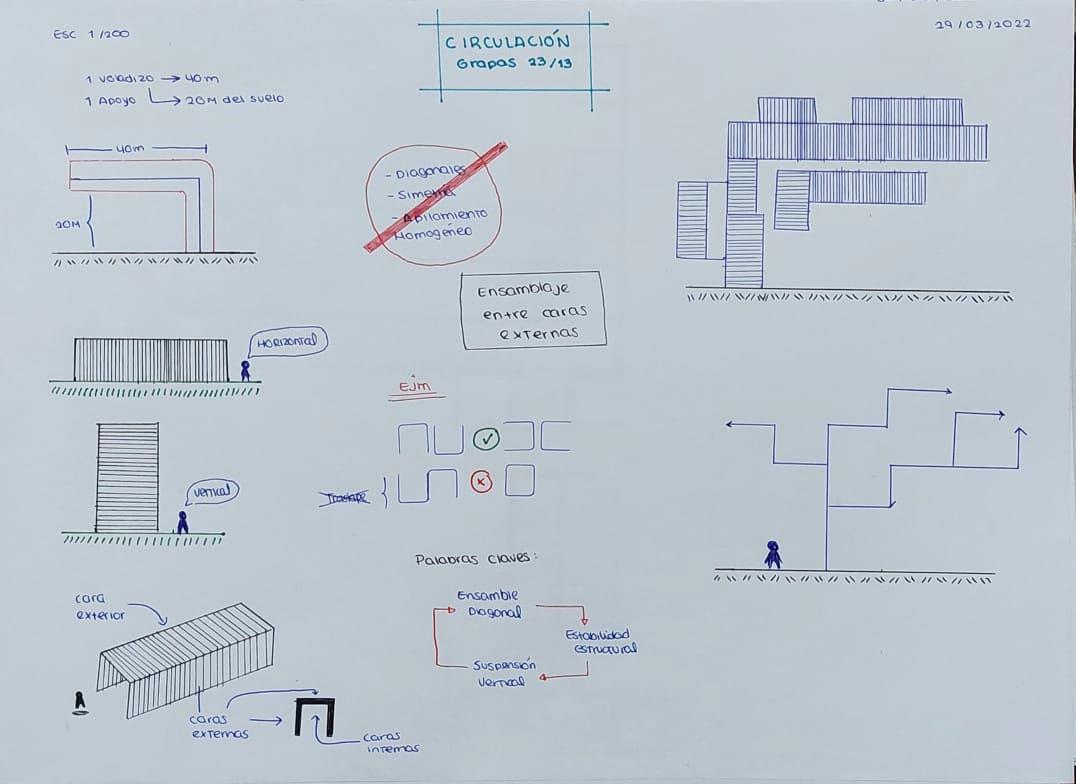 ESC 1/200
29/03/2022
CIRCULACIÓN
Grapas 23/13
1 Voladizo → 40m
1 Apoyo → 20M del suelo
40m
20M
- Diagonales
- Simetría
- Apilamiento
Homogéneo
Ensamblaje
entre caras
externas
HORIZONTAL
Ejm
Vertical
Traslape
Palabras claves:
Ensamble
Diagonal
Estabilidad
estructural
Suspensión
vertical
cara
exterior
caras
externas
caras
internas